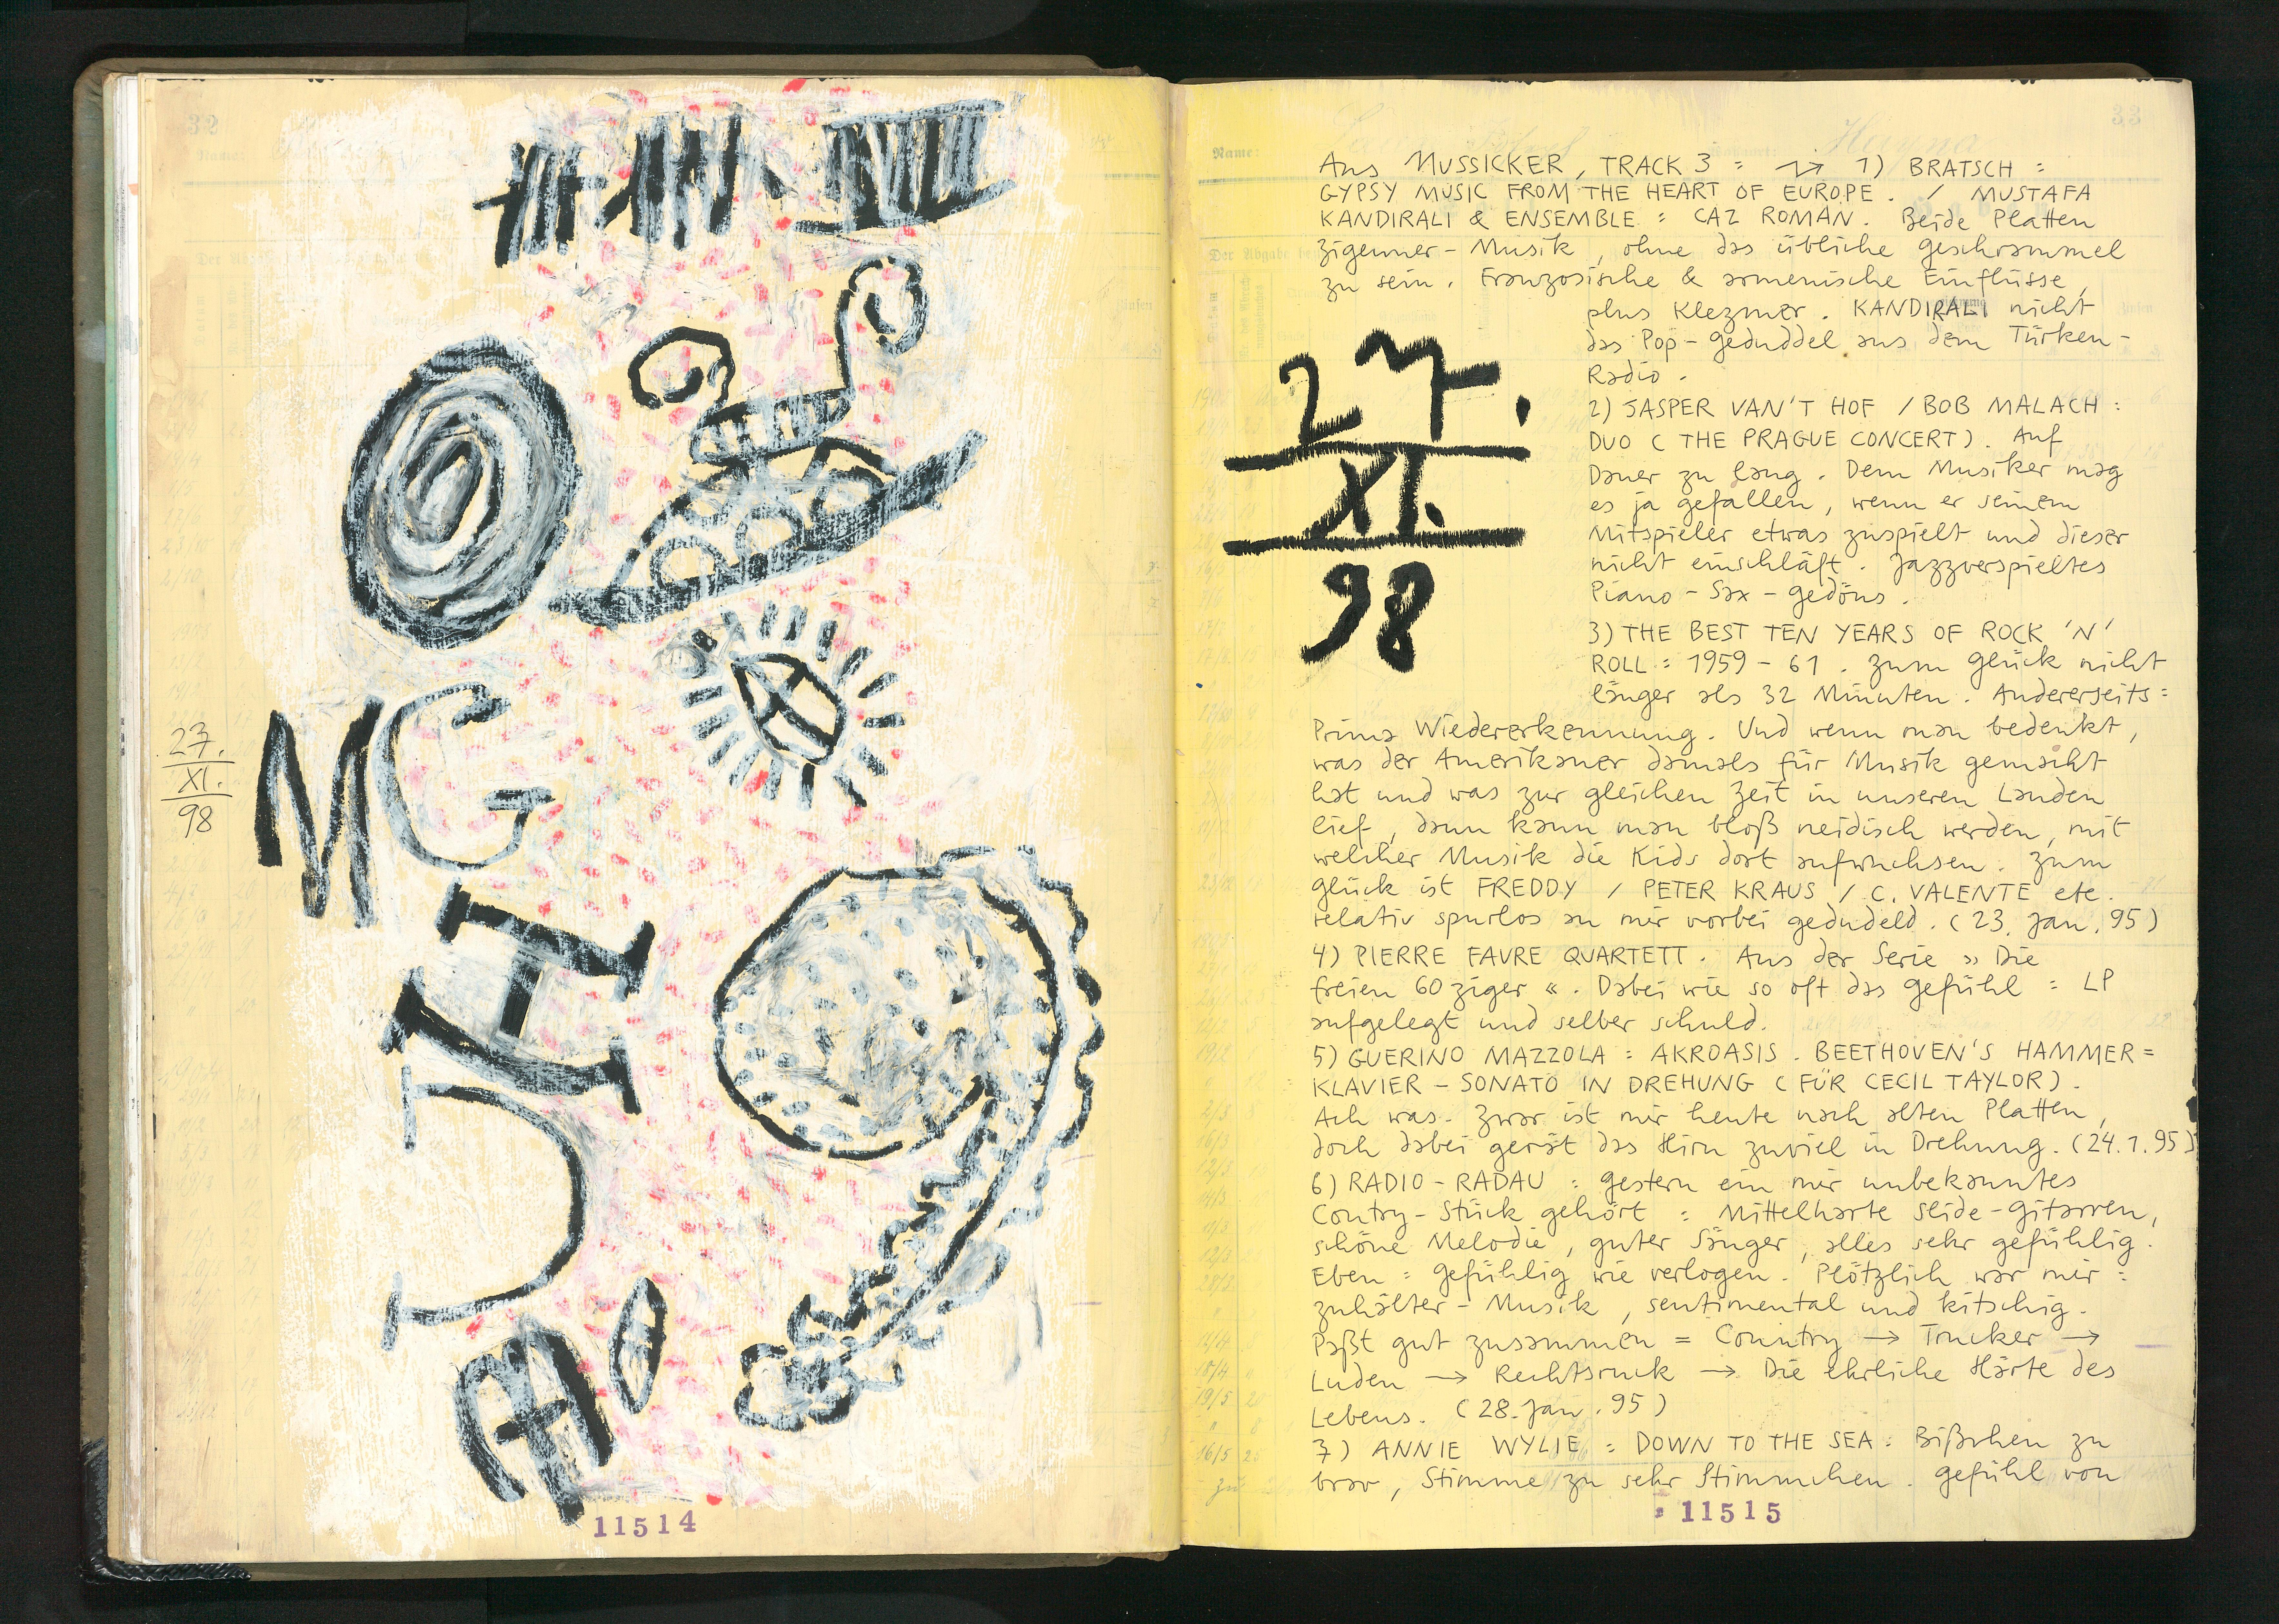 32
27.
XI.
98
MG
11514
33
Name:
Aus MUSSICKER, TRACK 3 : 1) BRATSCH :
GYPSY MUSIC FROM THE HEART OF EUROPE. / MUSTAFA
KANDIRALI & ENSEMBLE : CAZ ROMAN. Beide Platten
Zigeuner-Musik, ohne das übliche Geschrammel
zu sein. Französische & armenische Einflüsse,
plus Klezmer. KANDIRALI nicht
das Pop-Geduddel aus dem Türken-
Radio.
27.
XI.
98
2) JASPER VAN'T HOF / BOB MALACH :
DUO ( THE PRAGUE CONCERT ). Auf
Dauer zu lang. Dem Musiker mag
es ja gefallen, wenn er seinem
Mitspieler etwas zuspielt und dieser
nicht einschläft. Jazzverspieltes
Piano-Sax-Gedöns.
3) THE BEST TEN YEARS OF ROCK 'N'
ROLL : 1959 - 61. Zum Glück nicht
länger als 32 Minuten. Andererseits :
Prima Wiedererkennung. Und wenn man bedenkt,
was der Amerikaner damals für Musik gemacht
hat und was zur gleichen Zeit in unseren Landen
lief, dann kann man bloß neidisch werden, mit
welcher Musik die Kids dort aufwuchsen. Zum
Glück ist FREDDY / PETER KRAUS / C. VALENTE etc.
relativ spurlos an mir vorbei gedudeld. ( 23. Jan. 95 )
4) PIERRE FAVRE QUARTETT. Aus der Serie » Die
freien 60ziger «. Dabei wie so oft das Gefühl : LP
aufgelegt und selber schuld.
5) GUERINO MAZZOLA : AKROASIS. BEETHOVEN'S HAMMER=
KLAVIER - SONATO IN DREHUNG ( FÜR CECIL TAYLOR ).
Ach was. Zwar ist mir heute nach alten Platten,
doch dabei gerät das Hirn zuviel in Drehung. ( 24.1.95 )
6) RADIO-RADAU : Gestern ein mir unbekanntes
Contry-Stück gehört : Mittelharte Slide-Gitarren,
schöne Melodie, guter Sänger, alles sehr gefühlig.
Eben : Gefühlig wie verlogen. Plötzlich war mir :
Zuhälter-Musik, sentimental und kitschig.
Paßt gut zusammen = Country → Trucker →
Luden → Rechtsruck → Die ehrliche Härte des
Lebens. ( 28. Jan. 95 )
7) ANNIE WYLIE : DOWN TO THE SEA : Bißchen zu
brav, Stimme zu sehr Stimmchen. Gefühl von
11515